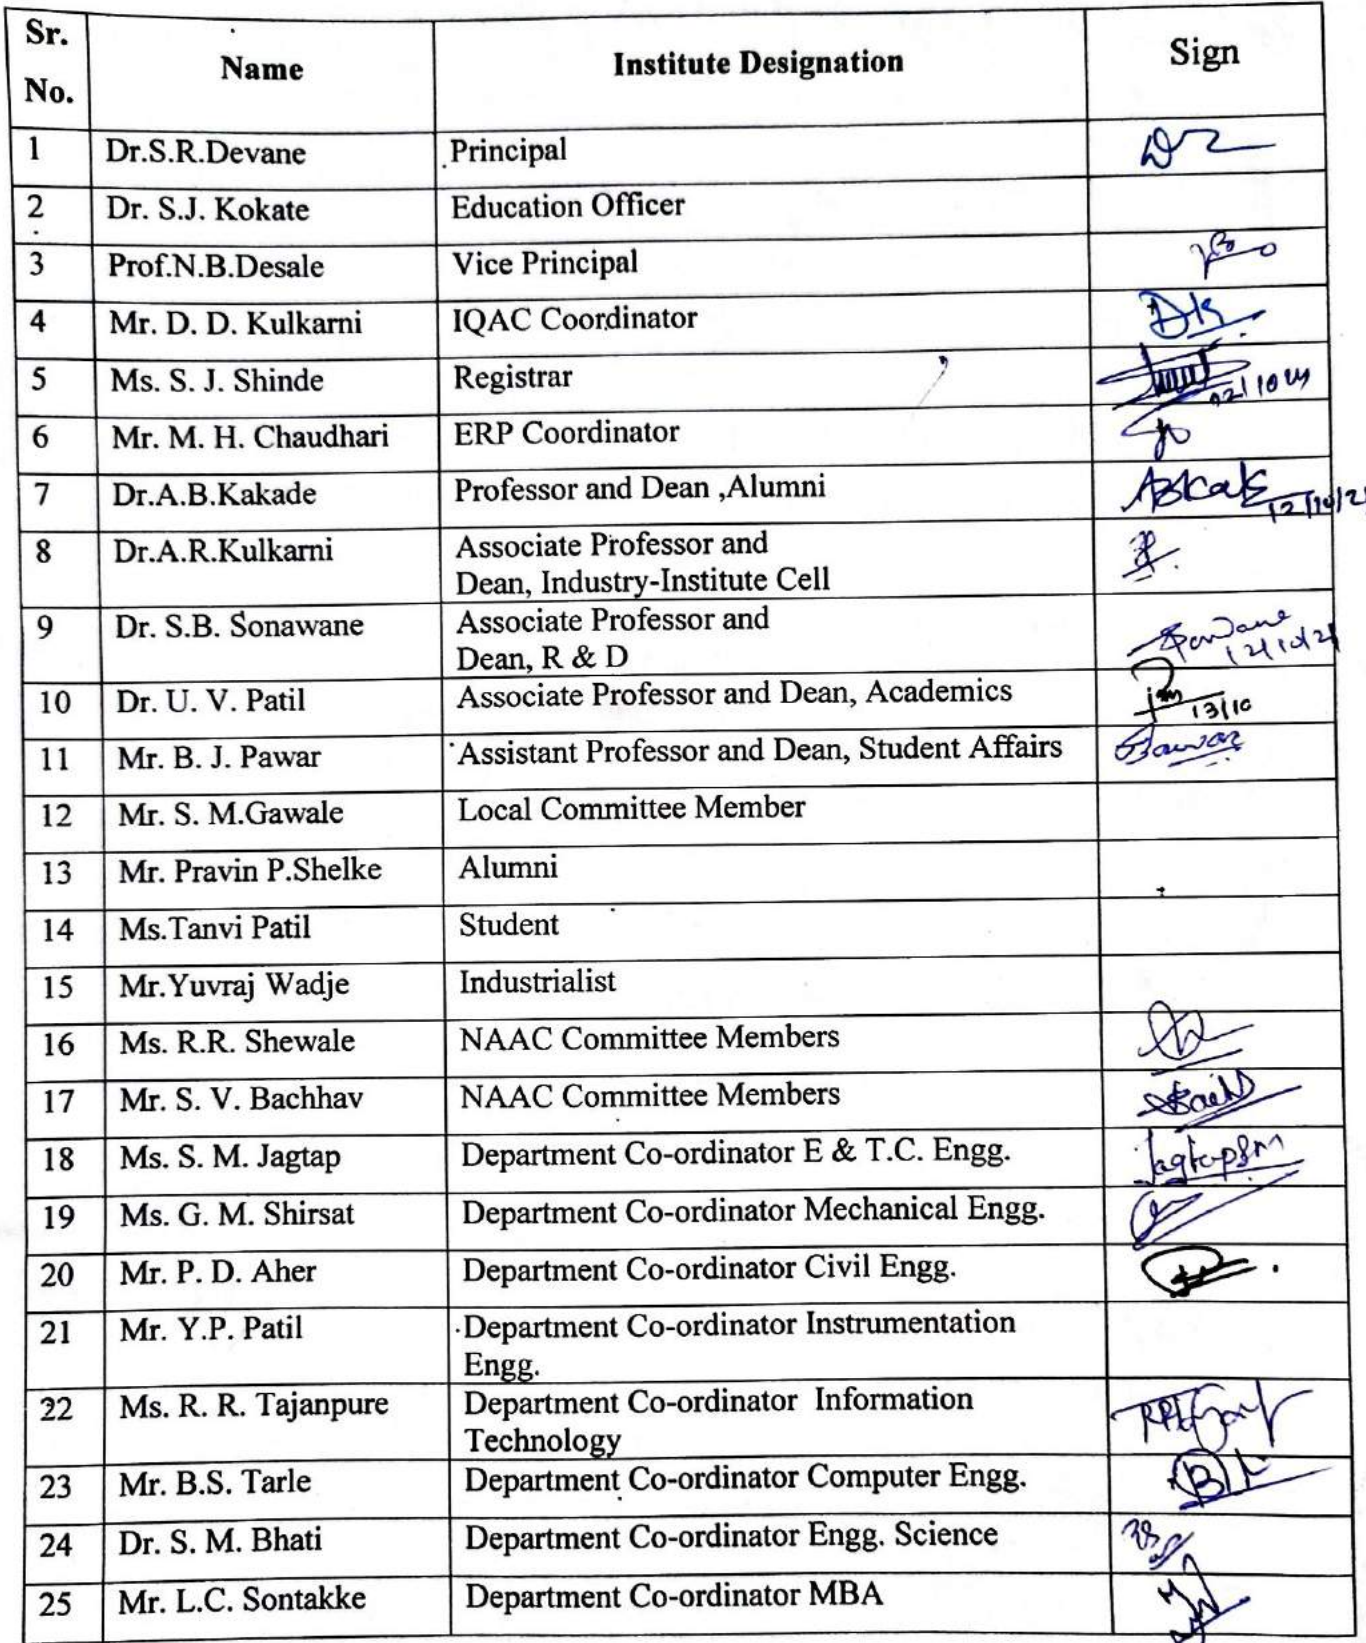 Sr. No. Name Institute Designation Sign
1 Dr.S.R.Devane Principal
2 Dr. S.J. Kokate Education Officer
3 Prof.N.B.Desale Vice Principal
4 Mr. D. D. Kulkarni IQAC Coordinator DK
5 Ms. S. J. Shinde Registrar
6 Mr. M. H. Chaudhari ERP Coordinator
7 Dr.A.B.Kakade Professor and Dean ,Alumni
8 Dr.A.R.Kulkarni Associate Professor and
Dean, Industry-Institute Cell
9 Dr. S.B. Sonawane Associate Professor and
Dean, R & D
10 Dr. U. V. Patil Associate Professor and Dean, Academics
13/10
11 Mr. B. J. Pawar Assistant Professor and Dean, Student Affairs
12 Mr. S. M.Gawale Local Committee Member
13 Mr. Pravin P.Shelke Alumni
14 Ms.Tanvi Patil Student
15 Mr.Yuvraj Wadje Industrialist
16 Ms. R.R. Shewale NAAC Committee Members
17 Mr. S. V. Bachhav NAAC Committee Members
18 Ms. S. M. Jagtap Department Co-ordinator E & T.C. Engg. Jagtapsm
19 Ms. G. M. Shirsat Department Co-ordinator Mechanical Engg.
20 Mr. P. D. Aher Department Co-ordinator Civil Engg.
21 Mr. Y.P. Patil Department Co-ordinator Instrumentation
Engg.
22 Ms. R. R. Tajanpure Department Co-ordinator Information
Technology
23 Mr. B.S. Tarle Department Co-ordinator Computer Engg.
24 Dr. S. M. Bhati Department Co-ordinator Engg. Science
25 Mr. L.C. Sontakke Department Co-ordinator MBA